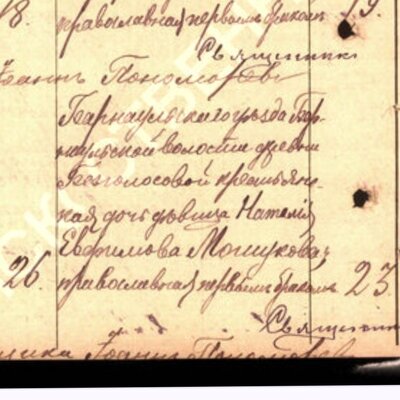 8. православная, первымъ бракомъ 19.
Священникъ
Іоаннъ Пономаревъ
Барнаульскаго уѣзда Бар-
наульской волости деревни
Безголосовой крестьян-
ская дочь дѣвица Наталія
Евфимова Мошукова,
26. православная, первымъ бракомъ 23
Священник
Іоаннъ Пономарев